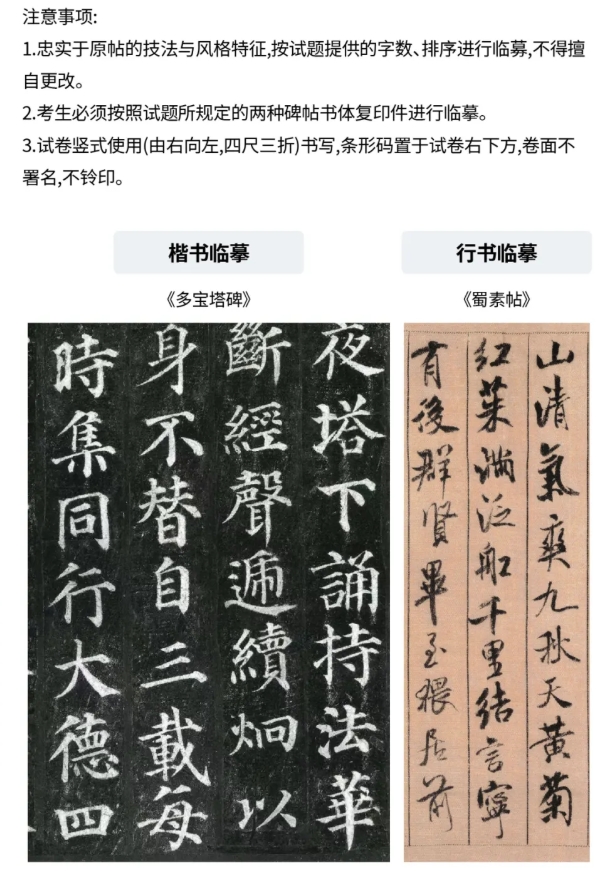 注意事项:
1.忠实于原帖的技法与风格特征,按试题提供的字数、排序进行临募,不得擅
自更改。
2.考生必须按照试题所规定的两种碑帖书体复印件进行临摹。
3.试卷竖式使用(由右向左,四尺三折)书写,条形码置于试卷右下方,卷面不
署名,不铃印。
楷书临摹
《多宝塔碑》
夜塔下誦持法華
斷經聲遞續炯以
身不替自三載每
時集同行大德四
行书临摹
《蜀素帖》
山清氣爽九秋天黄菊
红茱滿泛船千里结言寧
有後群賢畢至猥居前